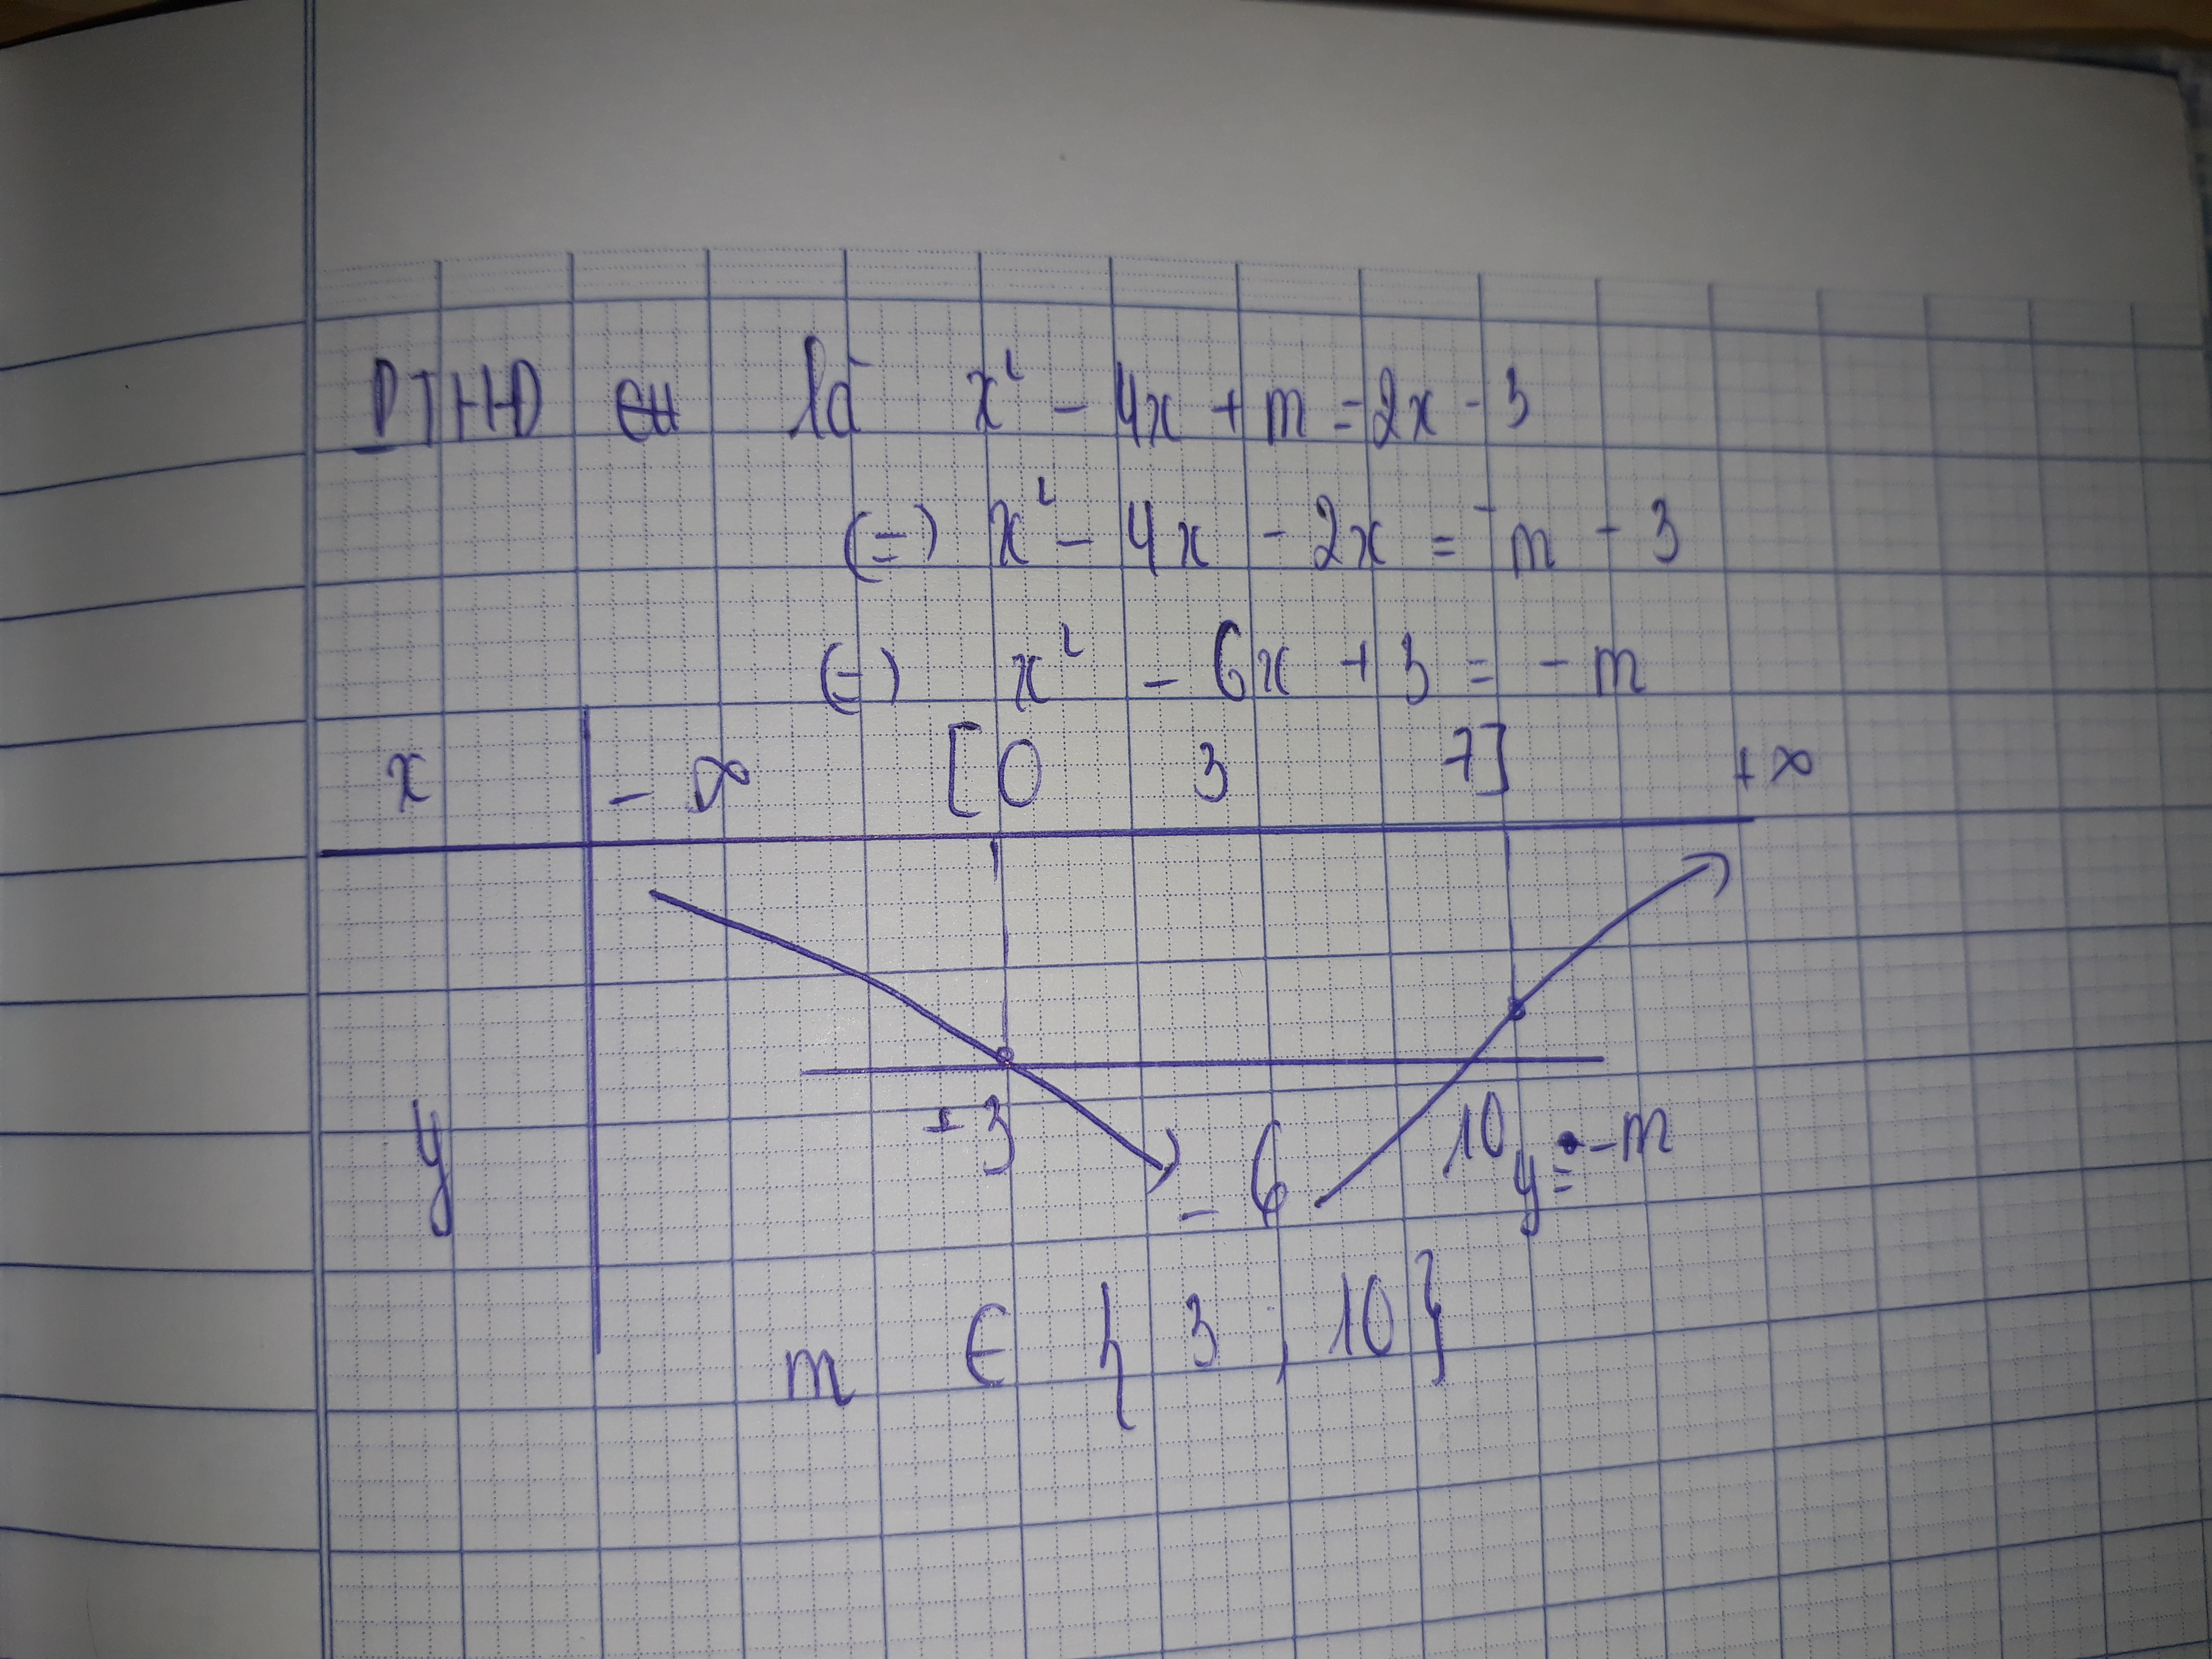 PTHĐ của là x² - 4x + m = 2x - 3
(=) x² - 4x - 2x = - m - 3
(=) x² - 6x + 3 = - m
x -∞ [0 3 7] +∞
y 3 -6 10 y = -m
m ∈ { 3, 10 }